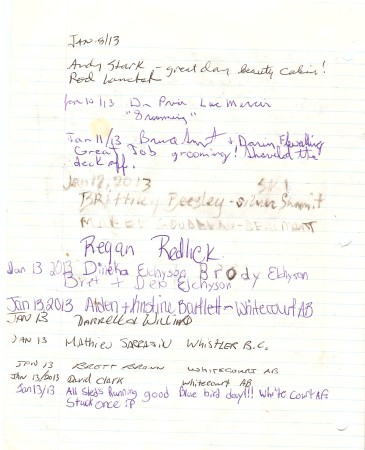 JAN-8/13
Andy Stark - great day beauty cabin!
Rod
Jan 10/13 Dr Lac Mercier
Jan 11/13 Bruce + Darin
Great Job grooming! Shoveled the
deck off.
Jan 12, 2013
BRittney Beesley - silver Summit
Regan Redlick
Jan 13 2013 Elchyson, BRODY Elchyson
Bret + Deb Elchyson
Jan 13 2013 + Kristine Bartlett - Whitecourt AB
JAN 13 DARRELL WILLIARD
JAN 13 MATHIEU SARRAZIN WHISTLER B.C.
JAN 13 BRETT BROWN WHITECOURT AB
JAN 13/2013 David Clark Whitecourt AB
Jan 13/13 All Sleds Running good blue bird day!!! Whitecourt AB
Stuck once :P